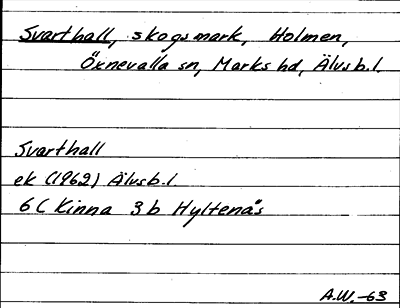 Svarthall, skogsmark, Holmen,
Öxnevalla sn, Marks hd, Älvsb.l.
Svarthall
ek (1962) Älvsb.l
6C Kinna 3b Hyltenäs
A.W.-63